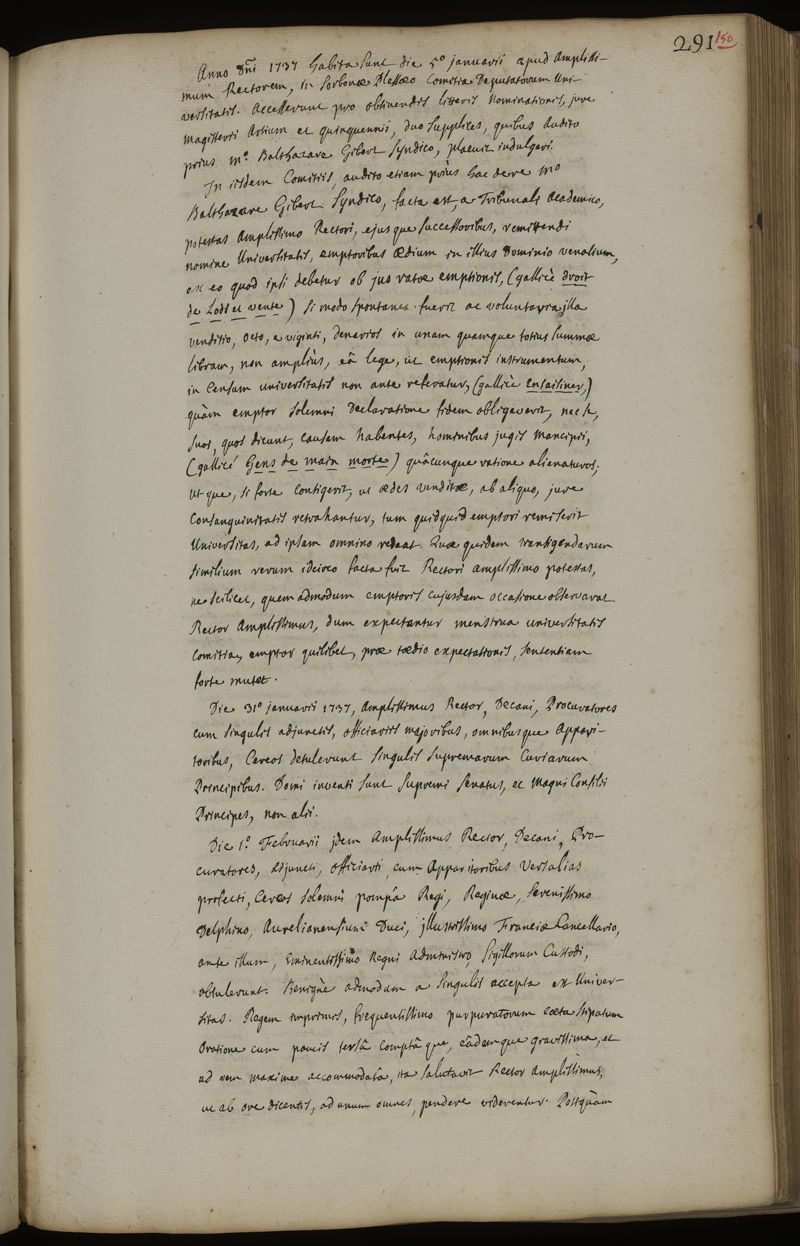 291 150
Anno Dni 1737 habita sunt die 5º januarii apud Amplissi-
mum Rectorem, in Sorbonæ Plessæo Comitia Deputatorum Uni-
versitatis. Accesserunt pro obtinendis litteris Nominationis, jure
Magisterii Artium et quinquennii, duo supplices, quibus audito
prius Mº. Balthazare Gibert Syndico, placuit indulgeri.
In iisdem Comitiis, audito etiam priùs hac de re Mº
Balthazare Gibert Syndico, facta est, a Tribunali Academico,
potestas Amplissimo Rectori, ejusque successoribus, remittendi
nomine Universitatis, emptoribus ædium in illius Dominio venalium,
ex eo quod ipsi debetur ob jus ratæ emptionis, (gallicè droit
de Lods et vente) si modo spontanea fuerit ac voluntaria illa
venditio, octo, e viginti, denarios in unam quamque totius summæ
libram, non ampliùs, eâ lege, ut emptionis instrumentum,
in Censum universitatis non ante referatur, (gallicè Ensaisiner,)
quàm emptor solemni Declaratione fidem obligaverit, nec se,
suos, quos dicunt, causam habentes, hominibus jugis mancipii,
(gallicé Gens de main morte) quâcunque ratione alienaturos;
utque, si forte contigerit, ut ædes venditæ, ab aliquo, jure
Consanguinitatis retrahantur, tum quidquid emptori remiserit
Universitas, ad ipsam omnino redeat. Quæ quidem transigendarum
similium rerum idcirco facta fuit Rectori amplissimo potestas,
ne scilicet, quemadmodum emptoris cujusdam occasione observarat
Rector Amplissimus, dum expectantur menstrua universitatis
Comitia, emptor quilibet, præ tædio expectationis, sententiam
forte mutet.
Die 31º januarii 1737, Amplissimus Rector, Decani, Procuratores
cum singulis adjunctis, officiariis majoribus, omnibusque Appari-
toribus, Cereos detulerunt singulis supremarum Curiarum
Principibus. Domi inventi sunt supremi senatus, et magni Consilii
Principes, non alii.
Die 1º. Februarii jdem Amplissimus Rector, Decani, Pro-
curatores, adjuncti, officiarii cum Apparitoribus Versalias
profecti, Cereos solemni pompâ Regi, Reginæ, serenissimo
Delphino, Aurelianensium Duci, jllustrissimo Franciæ Cancellario,
ante illum, Eminentissimo Regni Administro, Sigillorum Custodi,
obtulerunt. Benignè admodum a singulis accepta est Univer-
sitas. Regem imprimis, frequentissimo purpuratorum cœtu stipatum
Oratione cum paucis tersâ comptâque, eâdemque gravissima, et
ad rem maxime accommodatâ, ita salutavit Rector amplissimus,
ut ab ore dicentis, ad unum omnes, pendere viderentur. Postquàm